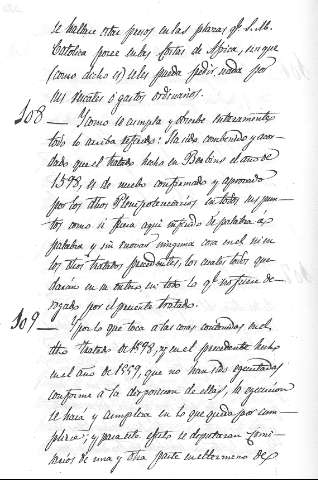 se hallare estar presos en las plazas qe. S. M.
Catolica posee en las costas de Africa, sin que
(como dicho es) seles pueda pedir nada por
sus rescates ó gastos ordinarios.
108 — Y como se cumpla y observe enteramente
todo lo arriba referido: Ha sido combenido y acor-
dado que el tratado hecho en Berbins el año de
1598, es de nuebo confirmado y aprovado
por los dhos Plenipotenciarios en todos sus pun-
tos como si fuera aqui inserido de palabra a
palabra y sin innovar ninguna cosa en el ni en
los dhos tratados precedentes, los cuales todos que-
darán en su entero en todo lo qe. no fuere de-
rogado por el presente tratado.
109 — Y por lo que toca a las cosas contenidas en el
dho tratado de 1598, y en el precedente hecho
en el año de 1559, que no han sido executadas
conforme á la disposicion de ellas, la ejecucion
se hará y cumplirá en lo que queda por cum-
plirse; y para este efecto se deputaran comi-
sarios de una y otra parte en el termino de